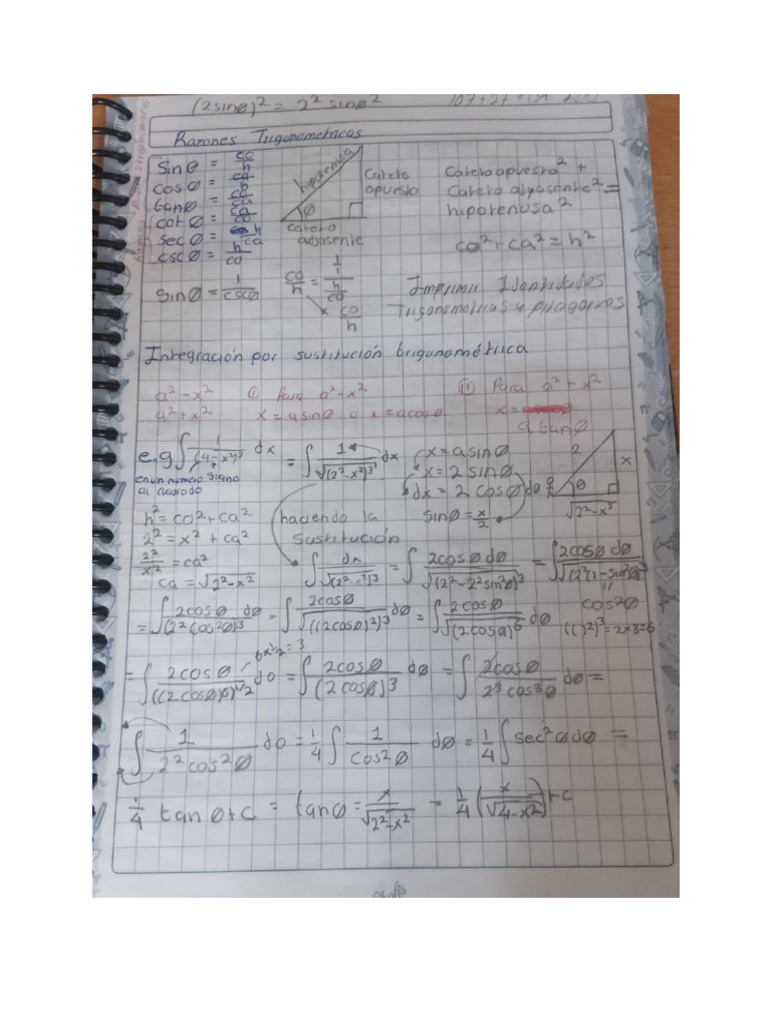 (2sinθ)² = 2² sinθ²
Razones Trigonometricas
sinθ = co/h
cosθ = ca/h
tanθ = co/ca
cotθ = ca/co
secθ = h/ca
cscθ = h/co
hipotenusa
cateto opuesto
θ
cateto adjasente
Cateto opuesto² +
Cateto adjasente² =
hipotenusa²
co² + ca² = h²
sinθ = 1/cscθ
co/h = (1/1)/(h/co)
co/h
Imprimir Identidades
Trigonometricas y pitagoricas
Integración por sustitución trigonométrica
a² - x² ① Para a² - x² ⑪ Para a² + x²
a² + x² x = a sinθ o x = a cosθ x =
a tanθ
e.g ∫ 1/√(4 - x²)³ dx = ∫ 1/√(2² - x²)³ dx x = a sinθ
x = 2 sinθ
dx = 2 cosθ dθ
es un numero signo
al cuadrado
2 x θ √2² - x²
h² = co² + ca² haciendo la sinθ = x/2
2² = x² + ca² sustitución
2²/x² = ca²
ca = √2² - x²
∫ dx/√(2² - x²)³ = ∫ 2cosθ dθ/√(2² - 2² sin²θ)³ = ∫ 2cosθ dθ/√(2²(1 - sin²θ)³
cos²θ
= ∫ 2cosθ/√(2² cos²θ)³ dθ = ∫ 2cosθ/√((2cosθ)²)³ dθ = ∫ 2cosθ/√(2cosθ)⁶ dθ (( )²)³ = 2×3=6
6×½ = 3
= ∫ 2cosθ/((2cosθ)⁶)^1/2 dθ = ∫ 2cosθ/(2cosθ)³ dθ = ∫ 2cosθ/2³cos³θ dθ =
∫ 1/2²cos²θ dθ = 1/4 ∫ 1/cos²θ dθ = 1/4 ∫ sec²θ dθ =
1/4 tanθ + c = tanθ = x/√2² - x² = 1/4 (x/√4 - x²) + c